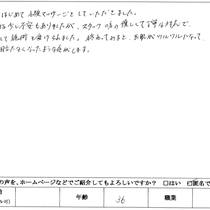 はじめて小顔マッサージをしていただきました。
少し不安もありましたが、スタッフの方が優しくて丁寧な方で、
して施術を受けられました。終わってみると、お肌がツルツルになって
目立たなくなったような気がします。
の声を、ホームページなどでご紹介してもよろしいですか？ □はい □匿名で
年齢 36 職業